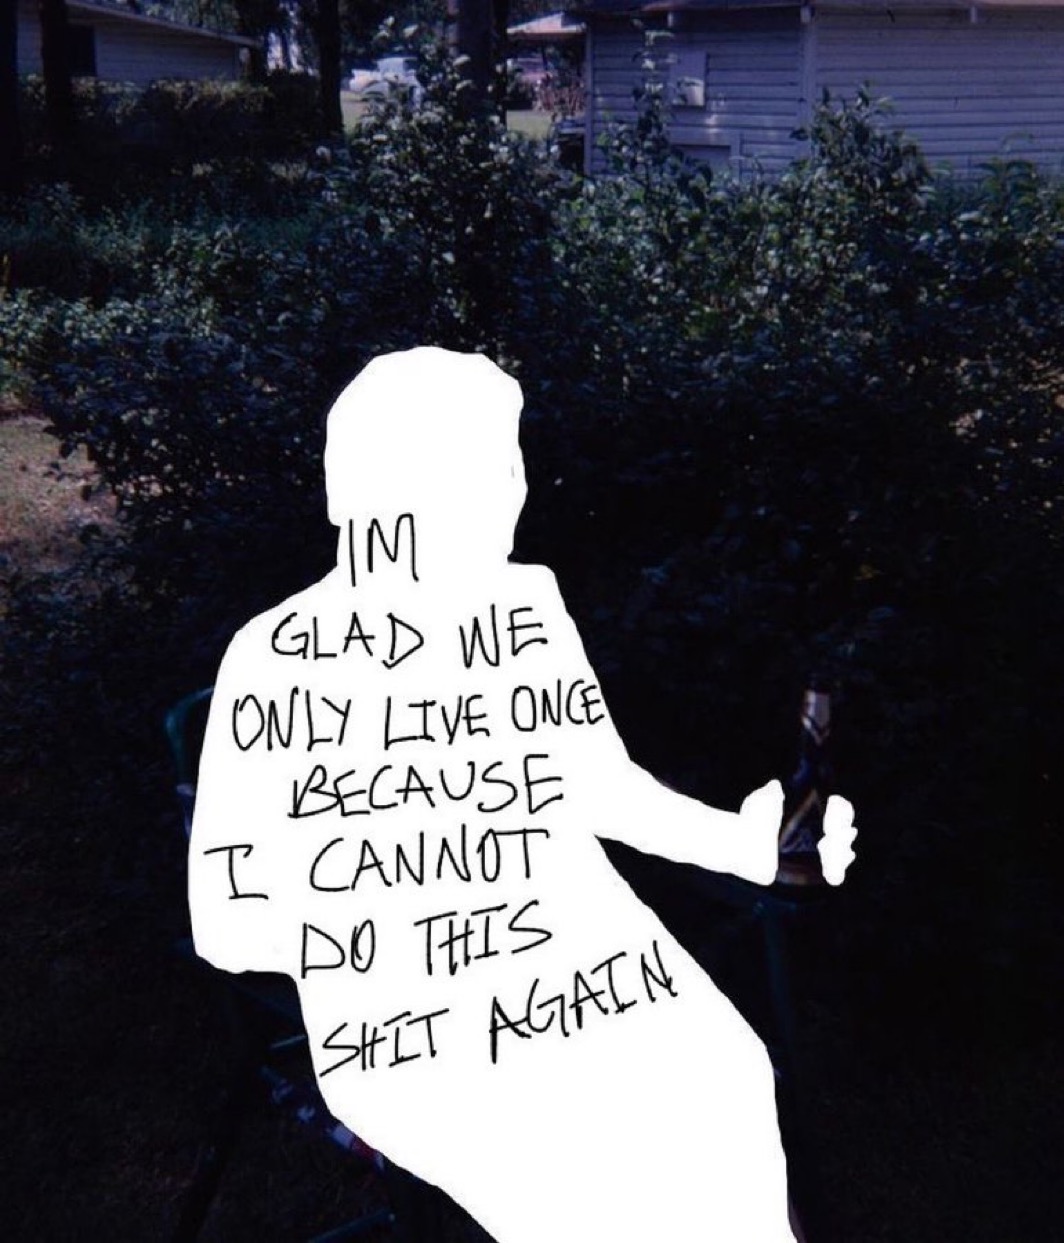 IM
GLAD WE
ONLY LIVE ONCE
BECAUSE
I CANNOT
DO THIS
SHIT AGAIN